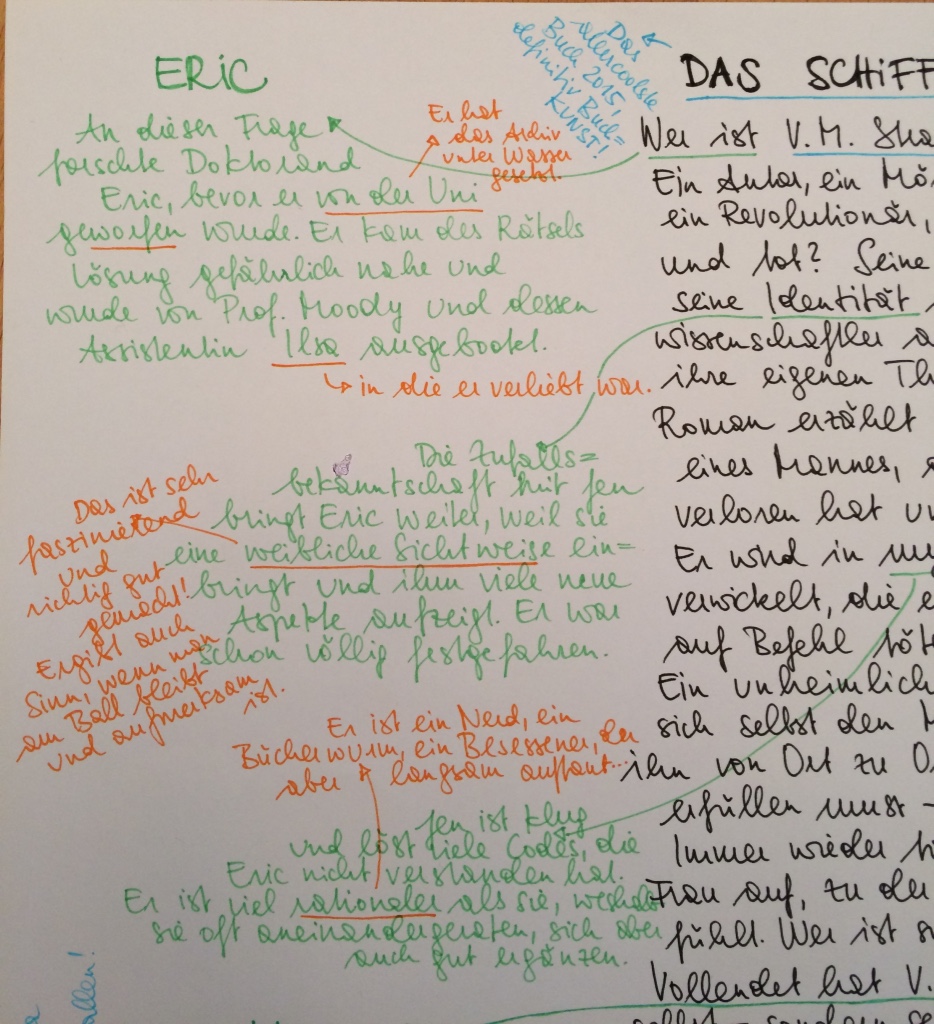 ERIC
An dieser Frage
forschte Doktorand
Eric, bevor er von der Uni
geworfen wurde. Er kam des Rätsels
Lösung gefährlich nahe und
wurde von Prof. Moody und dessen
Assistentin Ilsa ausgebootet.
↳ in die er verliebt war.
Er hat
das Archiv
unter Wasser
gesetzt.
Das
allercoolste
Buch 2015,
definitiv Buch=
KUNST!
Die Zufalls=
bekanntschaft mit Jen
bringt Eric weiter, weil sie
eine weibliche Sichtweise ein=
bringt und ihm viele neue
Aspekte aufzeigt. Er war
schon völlig festgefahren.
Das ist sehr
faszinierend
und
richtig gut
gemacht!
Ergibt auch
Sinn, wenn man
am Ball bleibt
und aufmerksam
ist.
Er ist ein Nerd, ein
Bücherwurm, ein Besessener, der
aber langsam auftaut...
Jen ist klug
und löst viele Codes, die
Eric nicht verstanden hat.
Er ist viel rationaler als sie, weshalb
sie oft aneinandergeraten, sich aber
auch gut ergänzen.
allen!
DAS SCHIFF
Wer ist V.M. Stra
Ein Autor, ein Mör
ein Revolutionär,
und tot? Seine
seine Identität
wissenschaftler
ihre eigenen Th
Roman erzählt
eines Mannes,
verloren hat un
Er wird in
verwickelt, die
auf Befehl töt
Ein unheimlich
sich selbst den
ihn von Ort zu O
erfüllen muss –
Immer wieder
Frau auf, zu der
fühlt. Wer ist
Vollendet hat V.
selbst – sondern se